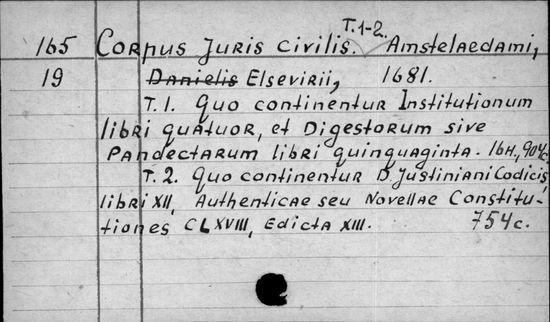 165 Corpus Juris civilis. T.1-2. Amstelaedami,
19 Danielis Elsevirii, 1681.
T. 1. Quo continentur Institutionum
libri quatuor, et Digestorum sive
Pandectarum libri quinquaginta. 16н., 904с.
T. 2. Quo continentur D. Justiniani Codicis
libri XII, Authenticae seu Novellae Constitu-
tiones CLXVIII, Edicta XIII. 754c.